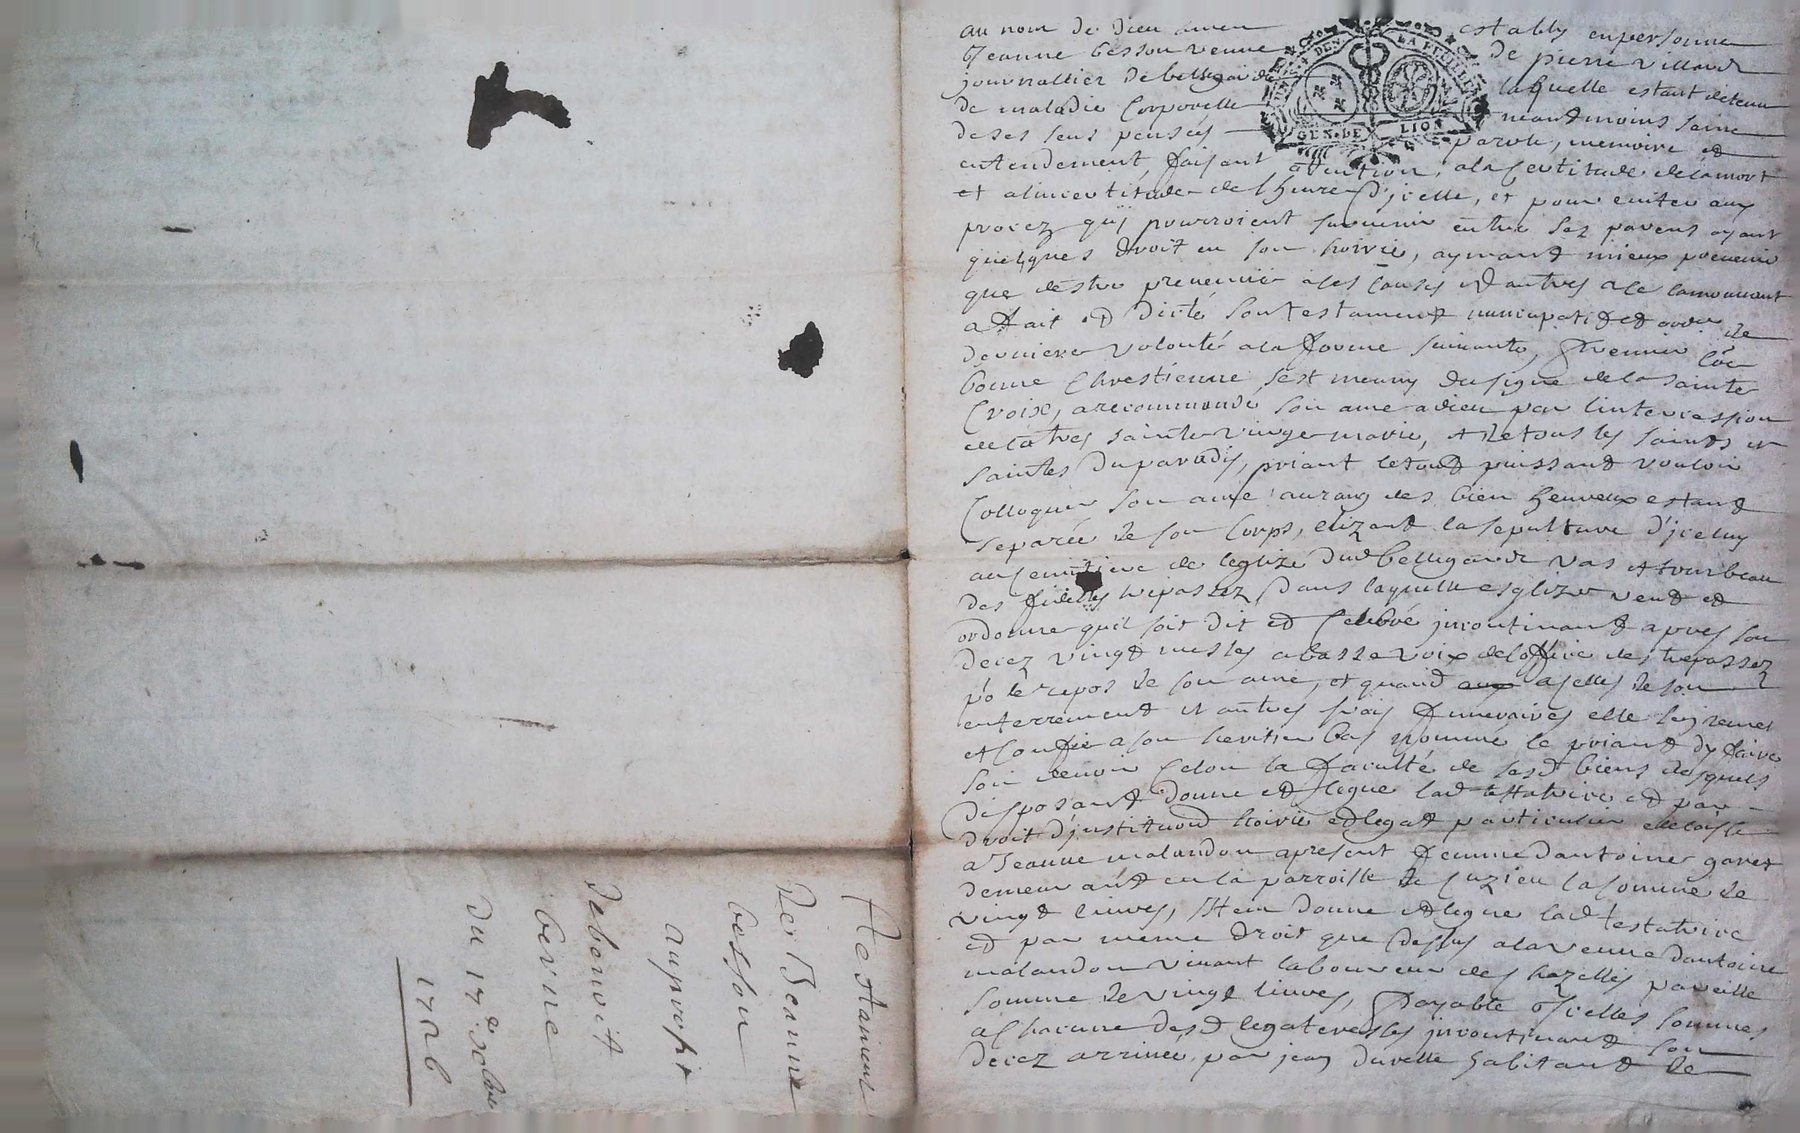 au nom de dieu amen establÿ en personne
Jeanne besson veuve de pierre villard
journallier de bellegarde laquelle estant detenue
de maladie corporelle neantmoins saine
de ses sens pensées parole, memoire et
entendement faisant attention, a la certitude de la mort
et a l incertitude de lheure d'icelle, et pour eviter aux
procez qui pourroient survenir entre ses parens ayant
quelques droit en son hoirie, aymant mieux prevenir
que destre prevenue a ces causes et autres a ce la mouvant
a fait et dicté son testament nuncupatif et ord de
derniere volonté a la forme suivante, Premier coe
bonne Chrestienne s'est meuny du signe de la sainte
Croix, a recommandé son ame a dieu par lintercession
de la tres sainte vierge marie, et de tous les saints et
saintes du paradis, priant le tout puissant vouloir
Colloquer son ame au rang des bien heureux estant
separée de son Corps, elizant la sepulture d'iceluy
au semittiere de leglize dud bellegarde vas et tombeau
des fidelles trepassez, dans laquelle esglize veut et
ordonne quil soit dit et Celebré incontinant apres son
decez vingt messes a basse voix de loffice des trepassez
po le repos de son ame, et quand a selles de son
enterrement et autres frais funeraires elle les remet
et Confie a son heritier bas nommé le priant dy faire
son devoir selon la faculté de sesd biens desquels
disposant donne et legue lad testatrice et par
droit d'institution hoirie et legat particulier delaisse
a Jeanne malandon apresent femme dantoine
demeurant en la parroisse de Cuzieu la somme de
vingt livres, Item donne et legue lad testatrice
et par meme droit que dessus a la veuve dantoine
malandon vivant laboureur des hazelles pareille
somme de vingt livres, Payable icelles sommes
a chacune desd legateresses incontinant son
decez arrivée par jean habitant de
GEN. DE LION
Testament
De Jeanne
besson
au profit
de benoit
berne
du 17e
1726